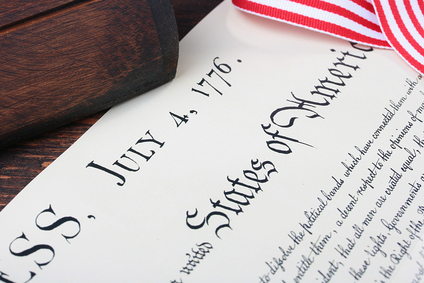 ESS, JULY 4, 1776.
united States of America
to dissolve the political bands which have connected them with
entitle them, a decent respect to the opinions of
ident, that all men are created equal, th
these rights, Governments a
is the Right of the